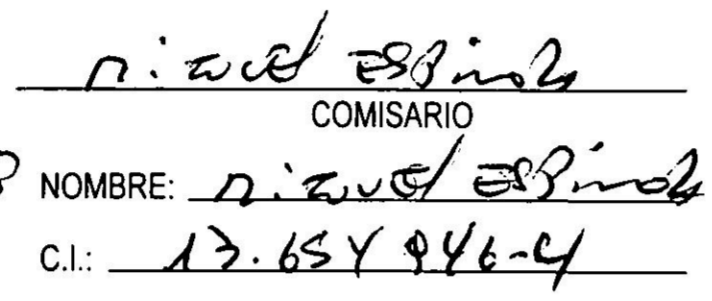 Miguel ESPinola
COMISARIO
NOMBRE: Miguel ESPinola
C.I.: 13.654 946-4